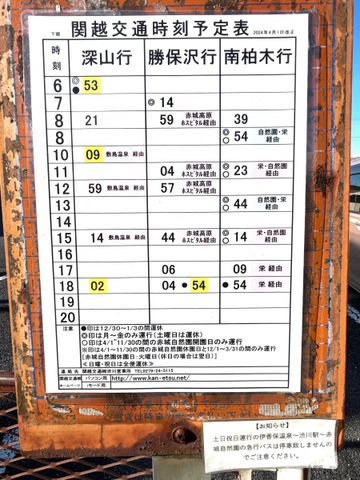 関越交通時刻予定表
下郷
2024年4月1日改正
時刻 深山行 勝保沢行 南柏木行
6 ◎● 53
7 ◎ 14
8 21 59 赤城高原ホスピタル経由 39
8 ◎○ 54 自然園・栄経由
10 09 敷島温泉 経由
11 04 赤城高原ホスピタル経由 ◎○ 23 栄・自然園経由
12 59 敷島温泉 経由 57 赤城高原ホスピタル経由
13 ◎○ 44 自然園・栄経由
14
15 14 敷島温泉 経由 44 赤城高原ホスピタル経由 ◎○ 14 栄・自然園経由
17 06 09 栄 経由
18 02 04 ● 54 ● 54 栄 経由
19
20
注意 ●印は12/30~1/3の間運休
◎印は月~金のみ運行(土曜日は運休)
○印は4/1~11/30の間の赤城自然園開園日のみ運行
※印は4/1~11/30の間の赤城自然園休園日と12/1~3/31の間のみ運行
[赤城自然園休園日:火曜日(休日の場合は翌日)]
<日曜・祝日は全便運休>
連絡先 関越交通㈱渋川営業所 TEL0279-24-5115
関越交通㈱ホームページ パソコン用 http://www.kan-etsu.net/
iモード用
【お知らせ】
土日祝日運行の伊香保温泉~渋川駅~赤
城自然園の急行バスは停車致しませんの
でご注意ください。